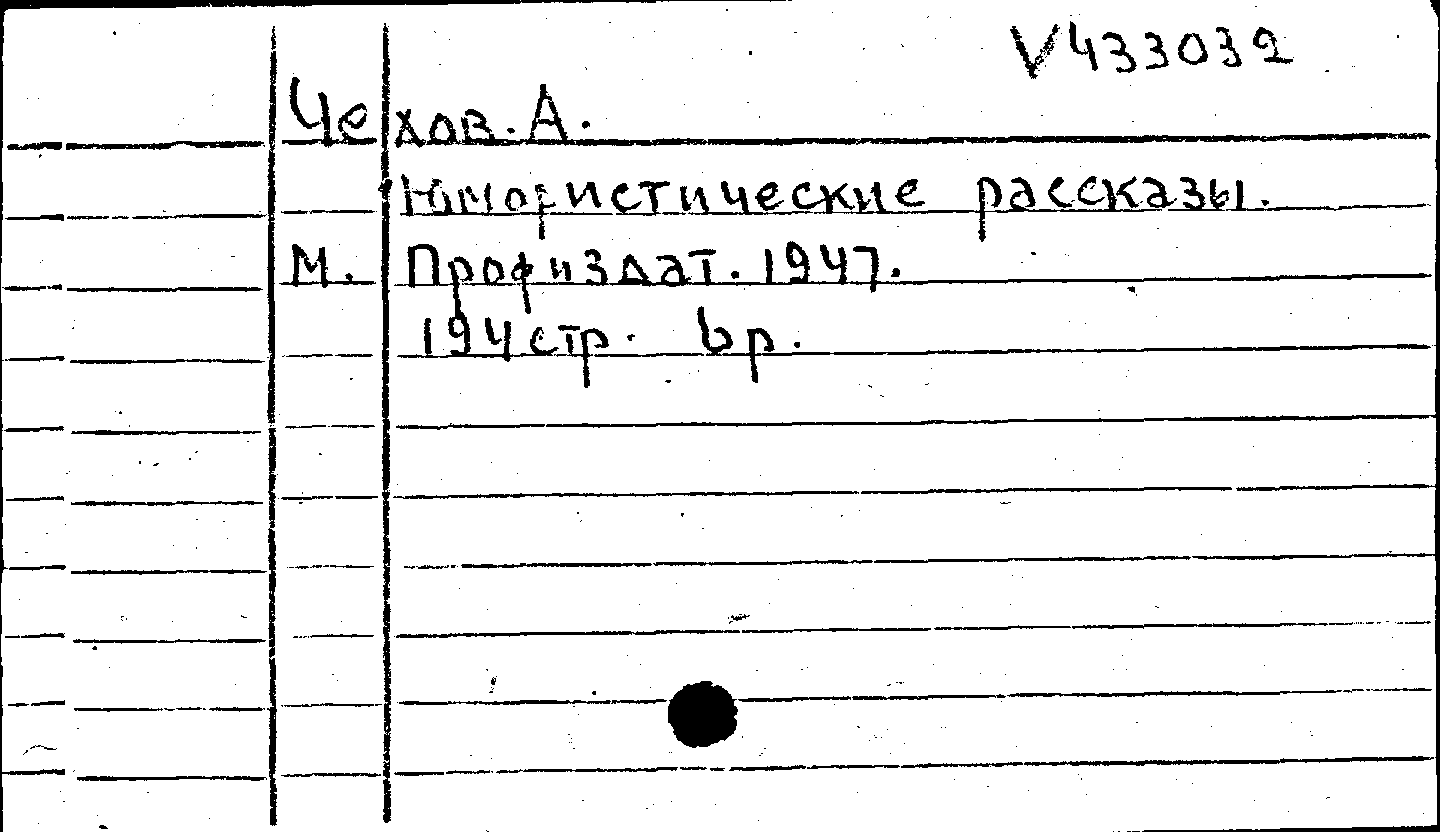 V433032
Чехов. А.
Юмористические рассказы.
М. Профиздат. 1947.
194 стр. 6 р.